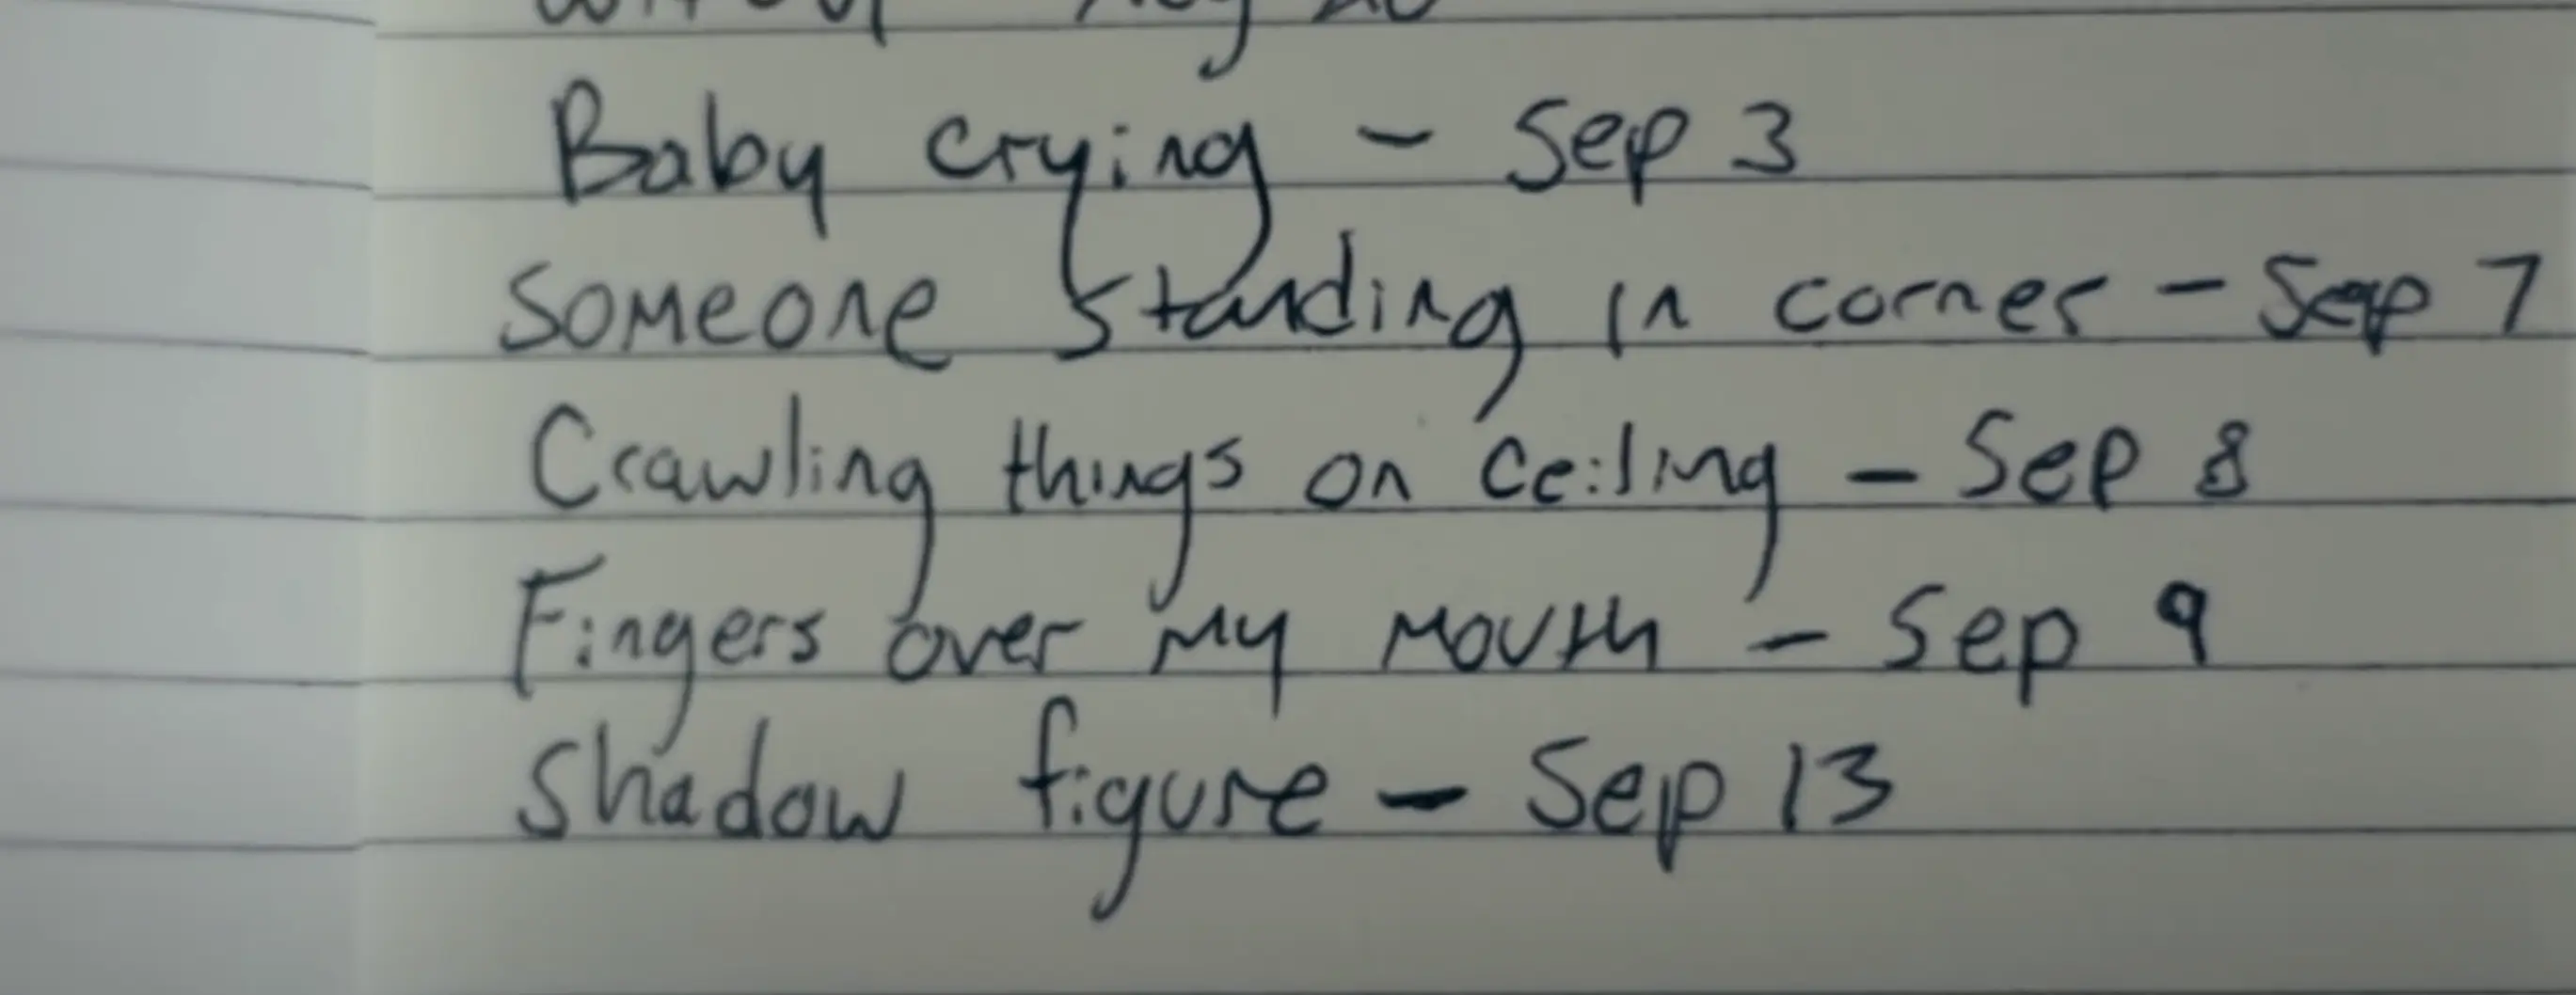 Baby crying - Sep 3
Someone standing in corner - Sep 7
Crawling things on ceiling - Sep 8
Fingers over my mouth - Sep 9
Shadow figure - Sep 13